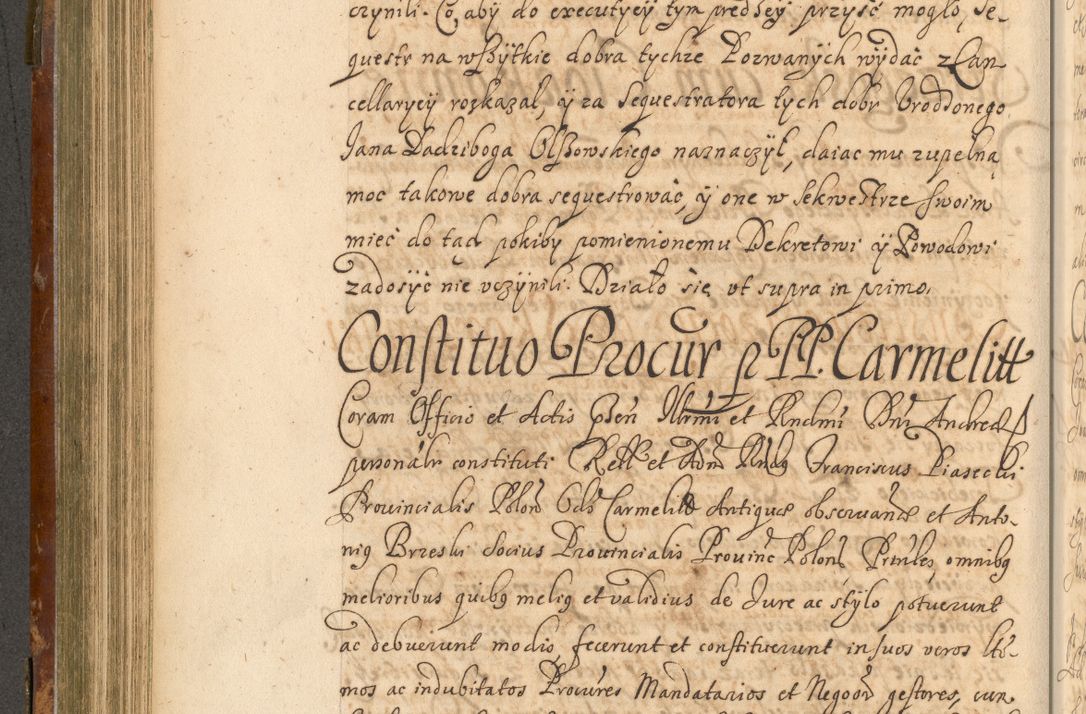 czynili. Co, aby do executyey tym prędzey przyść mogło, Se-
questr na wszÿtkie dobra tychże Pozwanych wÿdać z Can-
cellaryey rozkazał, ÿ za Sequestratora tych dobr Vrodzonego
Jana Dadziboga Olszowskiego naznaczÿł, daiac mu zupełną
moc takowe dobra sequestrować, ÿ one w Sekwestrze swoim
mieć do tąd pokiby pomienionemu Dekretowi ÿ Powodowi
zadosÿć nie vczÿnili. Działo się vt supra in primo.
Constituo Procur p PP. Carmelitt
Coram Officio et Actis Illrmi et Rndmi Dni Andreæ
personalr constituti Franciscus Piasecki
Prouincialis Polon Ords Carmelit Antiquæ obseruan et Anto-
nig Brzeski Socius Prouincialis Prouinc Polon omnibg
melioribus quibg melig et validius de Jure ac stÿlo potuerunt
ac debuerunt modio fecerunt et constituerunt in suos veros ltĩ-
mos ac indubitatos Procures Mandatarios et Negoor gestores, cun